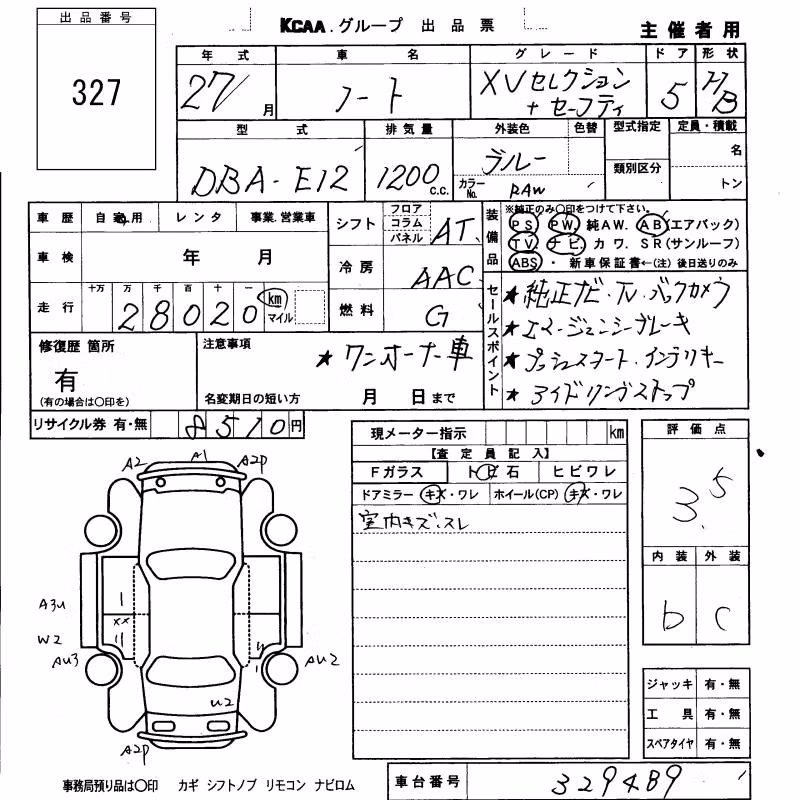 出品番号
327
KCAA.グループ 出品票
主催者用
年式 車名 グレード ドア 形状
27/ 月 ノート XVセレクション + セーフティ 5 H/B
型式 排気量 外装色 色替 型式指定 定員・積載
DBA-E12 1200 c.c. ブルー 類別区分 名
カラーNo. RAW トン
車歴 自家用 レンタ 事業.営業車
シフト フロア コラム パネル AT
装備品 ※純正のみ○印をつけて下さい。
PS PW 純AW. AB(エアバック)
TV ナビ カワ. SR(サンルーフ)
ABS ・ 新車保証書←(注)後日送りのみ
車検 年 月
冷房 AAC
走行 十万 万 千 百 十 一
28020 km マイル
燃料 G
セールスポイント
★純正ナビ・TV・バックカメラ
★エマージェンシーブレーキ
★プッシュスタート・インテリキー
★アイドリングストップ
修復歴 箇所
有
(有の場合は○印を)
注意事項
★ワンオーナー車
名変期日の短い方 月 日まで
リサイクル券 有・無 8510円
現メーター指示 km
【査定員記入】
Fガラス トビ石 ヒビワレ
ドアミラー キズ・ワレ ホイール(CP) キズ・ワレ
室内キズ・スレ
評価点
3.5
内装 外装
b C
A2 A1 A2P
A3U
XX
W2
AU3 AU2
U2
A2P
ジャッキ 有・無
工具 有・無
スペアタイヤ 有・無
事務局預り品は○印 カギ シフトノブ リモコン ナビロム
車台番号 329489